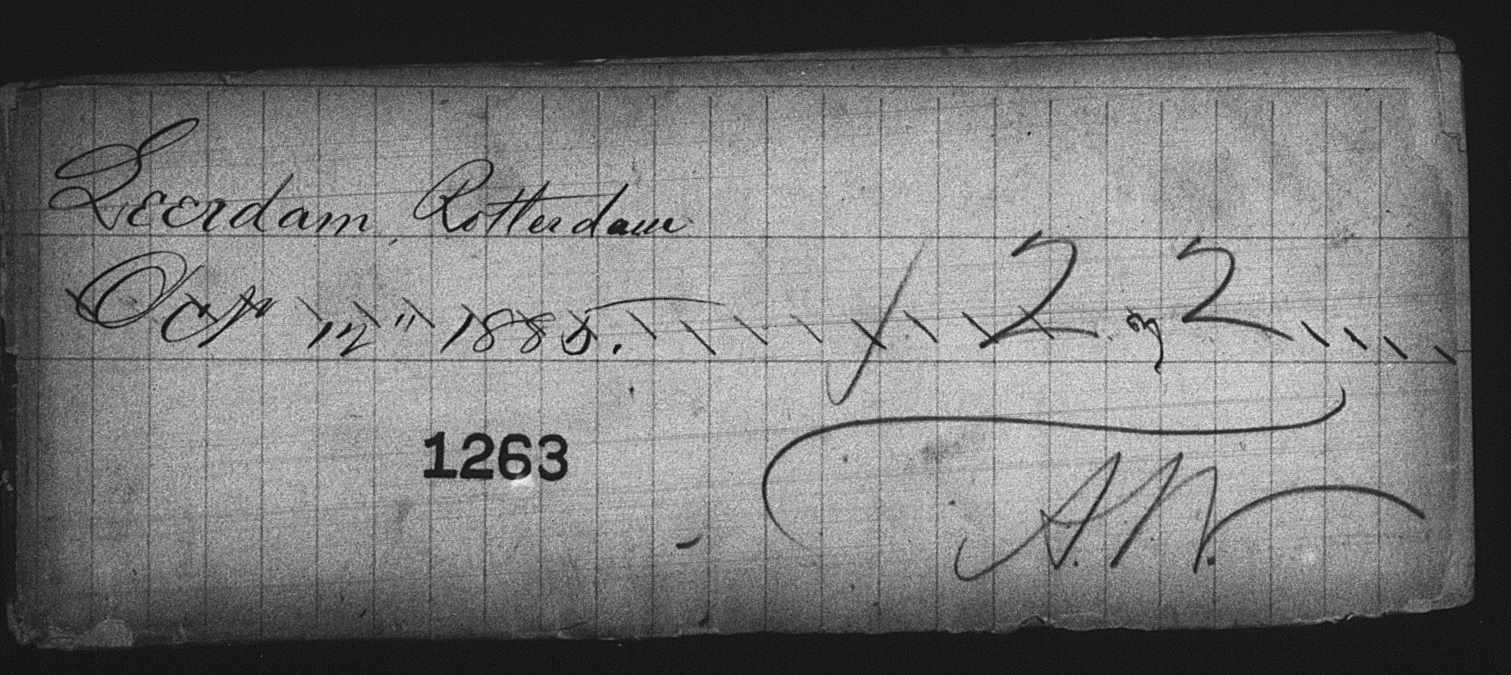 Leerdam, Rotterdam
Oct 12" 1885. / 2 2
1263
A.N.